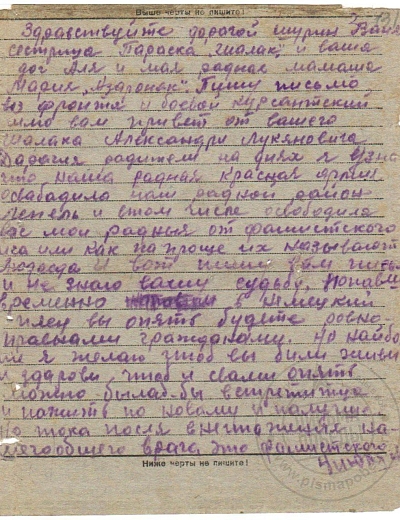 Выше черты не пишите!
Здравствуйте дорогой шурин Ваня
сестрица Параска и ваша
Аля и мая радная мамаша
Мария Пишу письмо
из фронтя и боевой курсантский
вам привет от вашего
Шалака Александра Лукяновича
Дарагия радители на днях я узна
что наша радная красная армия
освабадила наш радной район
Лепель и втом числе освободила
вас мои радныя от фашистского
или как папроще их називают
и вот пишу вам письм
и не знаю вашу судьбу. Попавш
временно в немецкий
плен вы опять будете равно-
правнами гражданаму. Но наибо
я желаю чтоб вы били живи
и здарови чтоб и свами опять
можно былаб бы встретитца
и пажить по новаму и получше
но тока после вничтажения на-
шегообщего врага это фашистского
Ниже черты не пишите!